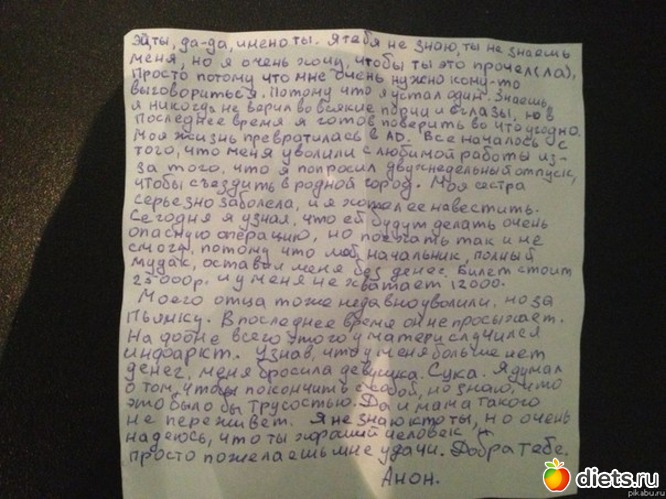 Эй, ты, да-да, имено ты. Я тебя не знаю, ты не знаешь
меня, но я очень хочу, чтобы ты это прочел(ла).
Просто потому что мне очень нужно кому-то
выговориться. Потому что я устал один. Знаешь,
я никогда не верил во всякие порчи и сглазы, но в
последнее время я готов поверить во что угодно.
Моя жизнь превратилась в AD. Все началось с
того, что меня уволили с любимой работы из-
за того, что я попросил двухнедельный отпуск,
чтобы съездить в родной город. Моя сестра
серьезно заболела, и я хотел ее навестить.
Сегодня я узнал, что ей будут делать очень
опасную операцию, но поехать так и не
смогу, потому что мой начальник, полный
мудак, оставил меня без денег. Билет стоит
25000р. и у меня не хватает 12000.
Моего отца тоже недавно уволили, но за
пьянку. В последнее время он не просыхает.
На фоне всего этого у матери случился
инфаркт. Узнав, что у меня больше нет
денег, меня бросила девушка. Сука. Я думал
о том, чтобы покончить с собой, но знаю, что
это было бы трусостью. Да и мама такого
не переживет. Я не знаю кто ты, но очень
надеюсь, что ты хороший человек и
просто пожелаешь мне удачи. Добра тебе.
Анон.
diets.ru
pikabu.ru